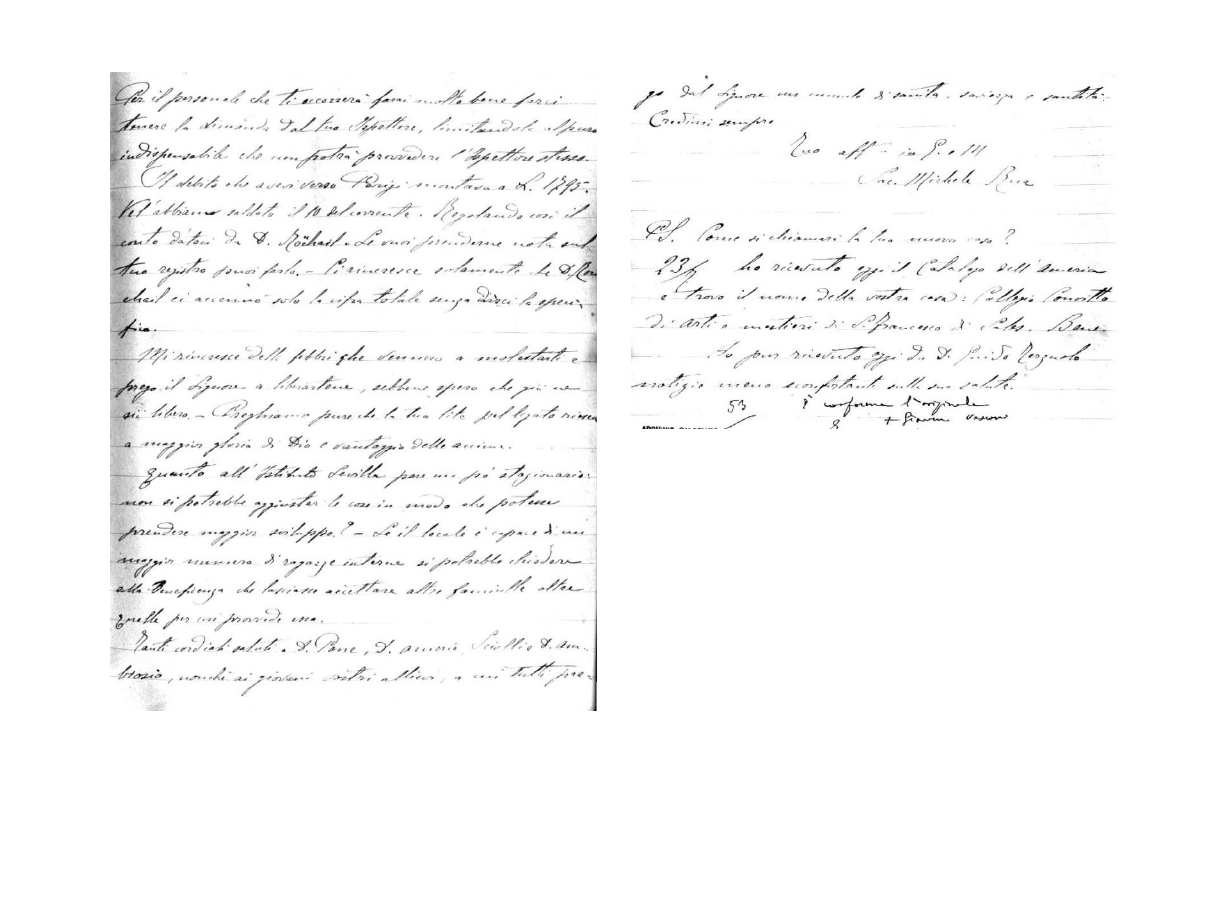 Per il personale che ti occorrerà farai molto bene farci
tenere la dimanda dal tuo Ispettore, limitandola al puro
indispensabile che non potrà provvedere l'Ispettore stesso.
Il debito che avevi verso Parigi montava a L. 1795.
Ve l'abbiamo saldato il 10 del corrente. Regolando così il
conto datoci da D.
tuo registro puoi farlo. - Ci rincresce solamente che D.
ci accennò solo la cifra totale senza darci la speci-
fica.
Mi rincresce delle febbri che vennero a molestarti e
prego il Signore a liberartene, sebbene spero che già ne
sii libero. - Preghiamo pure che la tua lite pel legato riesca
a maggior gloria di Dio e vantaggio delle anime.
Quanto all'Istituto Sevilla pare un po' stazionario:
non si potrebbe aggiustar le cose in modo che potesse
prendere maggior sviluppo? - Se il locale è capace di un
maggior numero di ragazze interne si potrebbe chiedere
alla Beneficenza che lasciasse accettare altre fanciulle oltre
quelle per cui provvede essa.
Tanti cordiali saluti a D. Pane, D. Am-
brosio, nonchè ai giovani vostri allievi, a cui tutti pre-
go dal Signore un cumulo di sanità, scienza e santità.
Credimi sempre
Tuo aff in G. e M
Sac. Michele Rua
PS. Come si chiamerà la tua nuova casa?
ho ricevuto oggi il Catalogo dell'America
e trovo il nome della vostra casa: Collegio Convitto
di Arti e mestieri di S. Francesco di Sales. Bene
Ho pur ricevuto oggi da D. Guido
notizie meno sconfortanti sulla sua salute.
53
è conforme l'originale
+ Giovanni